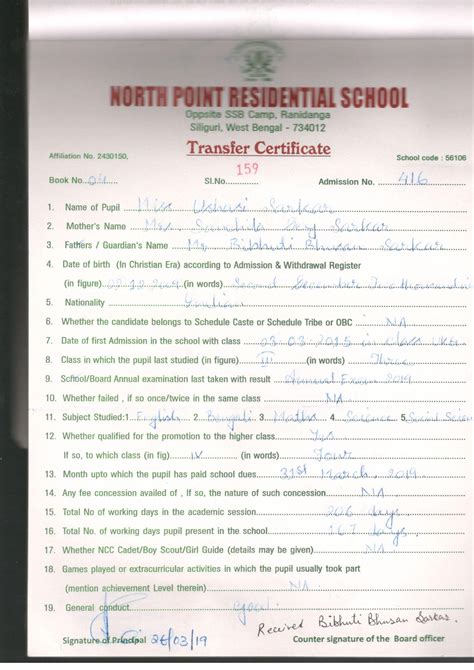 NORTH POINT RESIDENTIAL SCHOOL
Opposite SSB Camp, Ranidanga
Siliguri, West Bengal - 734012
Transfer Certificate
Affiliation No. 2430150, School code : 56106
Book No. 04 Sl.No. 159 Admission No. 416
1. Name of Pupil Miss Ushasi Sarkar
2. Mother's Name Mrs. Dey Sarkar
3. Fathers / Guardian's Name Mr. Bibhuti Bhusan Sarkar
4. Date of birth (In Christian Era) according to Admission & Withdrawal Register
(in figure) (in words) Second December Two thousand
5. Nationality Indian
6. Whether the candidate belongs to Schedule Caste or Schedule Tribe or OBC NA
7. Date of first Admission in the school with class 03-03-2015 in class UKG
8. Class in which the pupil last studied (in figure) III (in words) Three
9. School/Board Annual examination last taken with result Annual Exam 2019
10. Whether failed , if so once/twice in the same class NA
11. Subject Studied:1. English 2. Bengali 3. Maths 4. Science 5.
12. Whether qualified for the promotion to the higher class Yes
If so, to which class (in fig) IV (in words) Four
13. Month upto which the pupil has paid school dues 31st March, 2019
14. Any fee concession availed of , If so, the nature of such concession NA
15. Total No of working days in the academic session 206 days
16. Total No. of working days pupil present in the school 167 days
17. Whether NCC Cadet/Boy Scout/Girl Guide (details may be given) NA
18. Games played or extracurricular activities in which the pupil usually took part
(mention achievement Level therein) NA
19. General conduct Good
Received Bibhuti Bhusan Sarkar
Signature of Principal 26/03/19 Counter signature of the Board officer